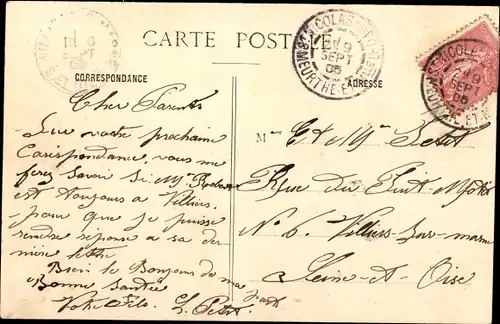 CARTE POSTALE
CORRESPONDANCE
ADRESSE
ST NICOLAS
9
SEPT
05
MEURTHE ET
NICOLAS
9
SEPT
05
Cher Parents
Sur votre prochaine
Corispondance vous me
ferez savoir si Mr
est toujours a Villiers
pour que je puisse
rendre réponse a sa der-
nière lettre
Bien le Bonjours de ma part
Bonne Santée
Votre Fils. L. Petit
M et Me Petit
Rue du Puit
No 6. Villiers-sur-marne
Seine-et-Oise